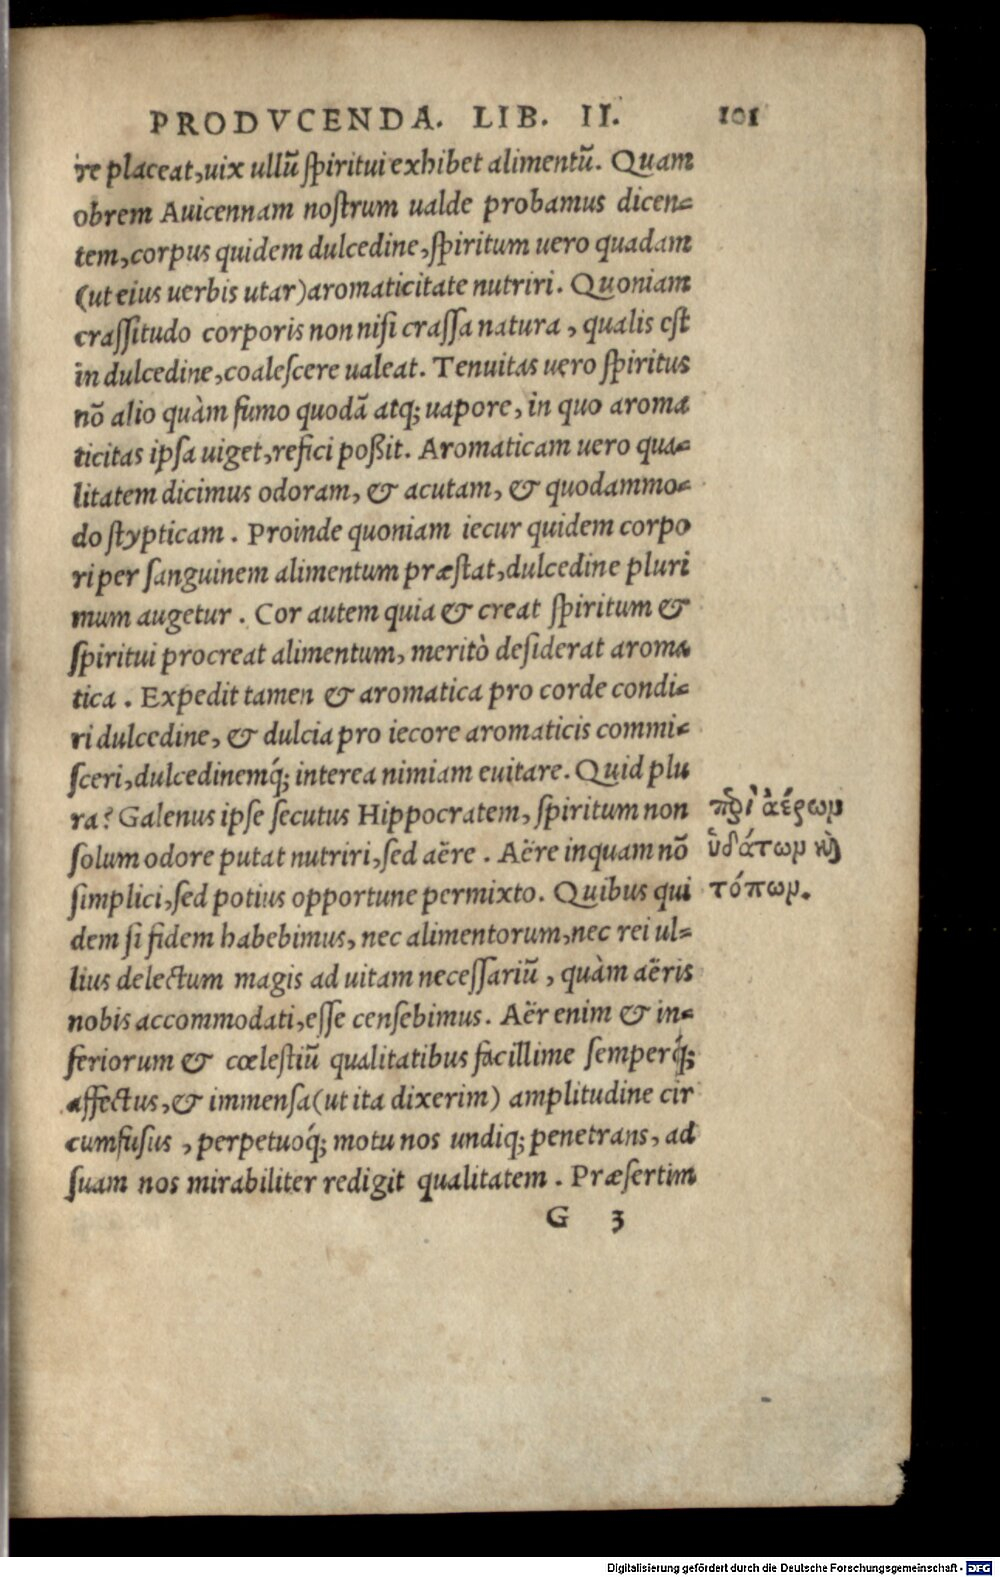 PRODVCENDA. LIB. II. 101
re placeat, uix ullũ ſpiritui exhibet alimentũ. Quam
obrem Auicennam noſtrum ualde probamus dicen=
tem, corpus quidem dulcedine, ſpiritum uero quadam
(ut eius uerbis utar) aromaticitate nutriri. Quoniam
craſſitudo corporis non niſi craſſa natura, qualis eſt
in dulcedine, coaleſcere ualeat. Tenuitas uero ſpiritus
nõ alio quàm fumo quodã atq; uapore, in quo aroma
ticitas ipſa uiget, refici poßit. Aromaticam uero qua=
litatem dicimus odoram, & acutam, & quodammo=
do ſtypticam. Proinde quoniam iecur quidem corpo
ri per ſanguinem alimentum præſtat, dulcedine pluri
mum augetur. Cor autem quia & creat ſpiritum &
ſpiritui procreat alimentum, meritò deſiderat aroma
tica. Expedit tamen & aromatica pro corde condi=
ri dulcedine, & dulcia pro iecore aromaticis commi=
ſceri, dulcedinemq́; interea nimiam euitare. Quid plu
ra? Galenus ipſe ſecutus Hippocratem, ſpiritum non
ſolum odore putat nutriri, ſed aëre. Aëre inquam nõ
ſimplici, ſed potius opportune permixto. Quibus qui
dem ſi fidem habebimus, nec alimentorum, nec rei ul=
lius delectum magis ad uitam neceſſariũ, quàm aëris
nobis accommodati, eſſe cenſebimus. Aër enim & in=
feriorum & cœleſtiũ qualitatibus facillime ſemperq́;
affectus, & immenſa (ut ita dixerim) amplitudine cir
cumfuſus, perpetuoq́; motu nos undiq; penetrans, ad
ſuam nos mirabiliter redigit qualitatem. Præſertim
G 3
περὶ ἀέρων
ὑδάτων καὶ
τόπων.
Digitalisierung gefördert durch die Deutsche Forschungsgemeinschaft - DFG